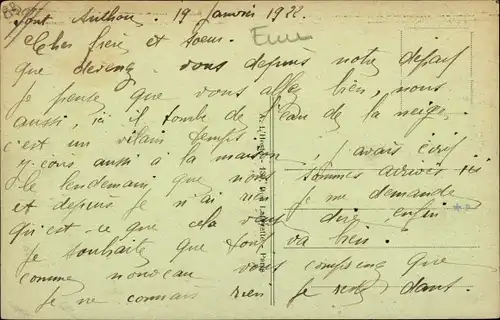 Pont Authou. 19 Janvier 1922
Cher frère et soeur.
que devenez vous depuis notre départ
je pense que vous allez bien, nous
aussi, ici il tombe de l'eau de la neige,
c'est un vilain temps, j'avais écrit
aussi à la maison
le lendemain que nous sommes arrivés ici
et depuis je n'ai rien je me demande
Qu'est-ce que cela veut dire, enfin
je souhaite que tout va bien.
comme nouveau vous comprenez que
je ne connais rien je reste dans.